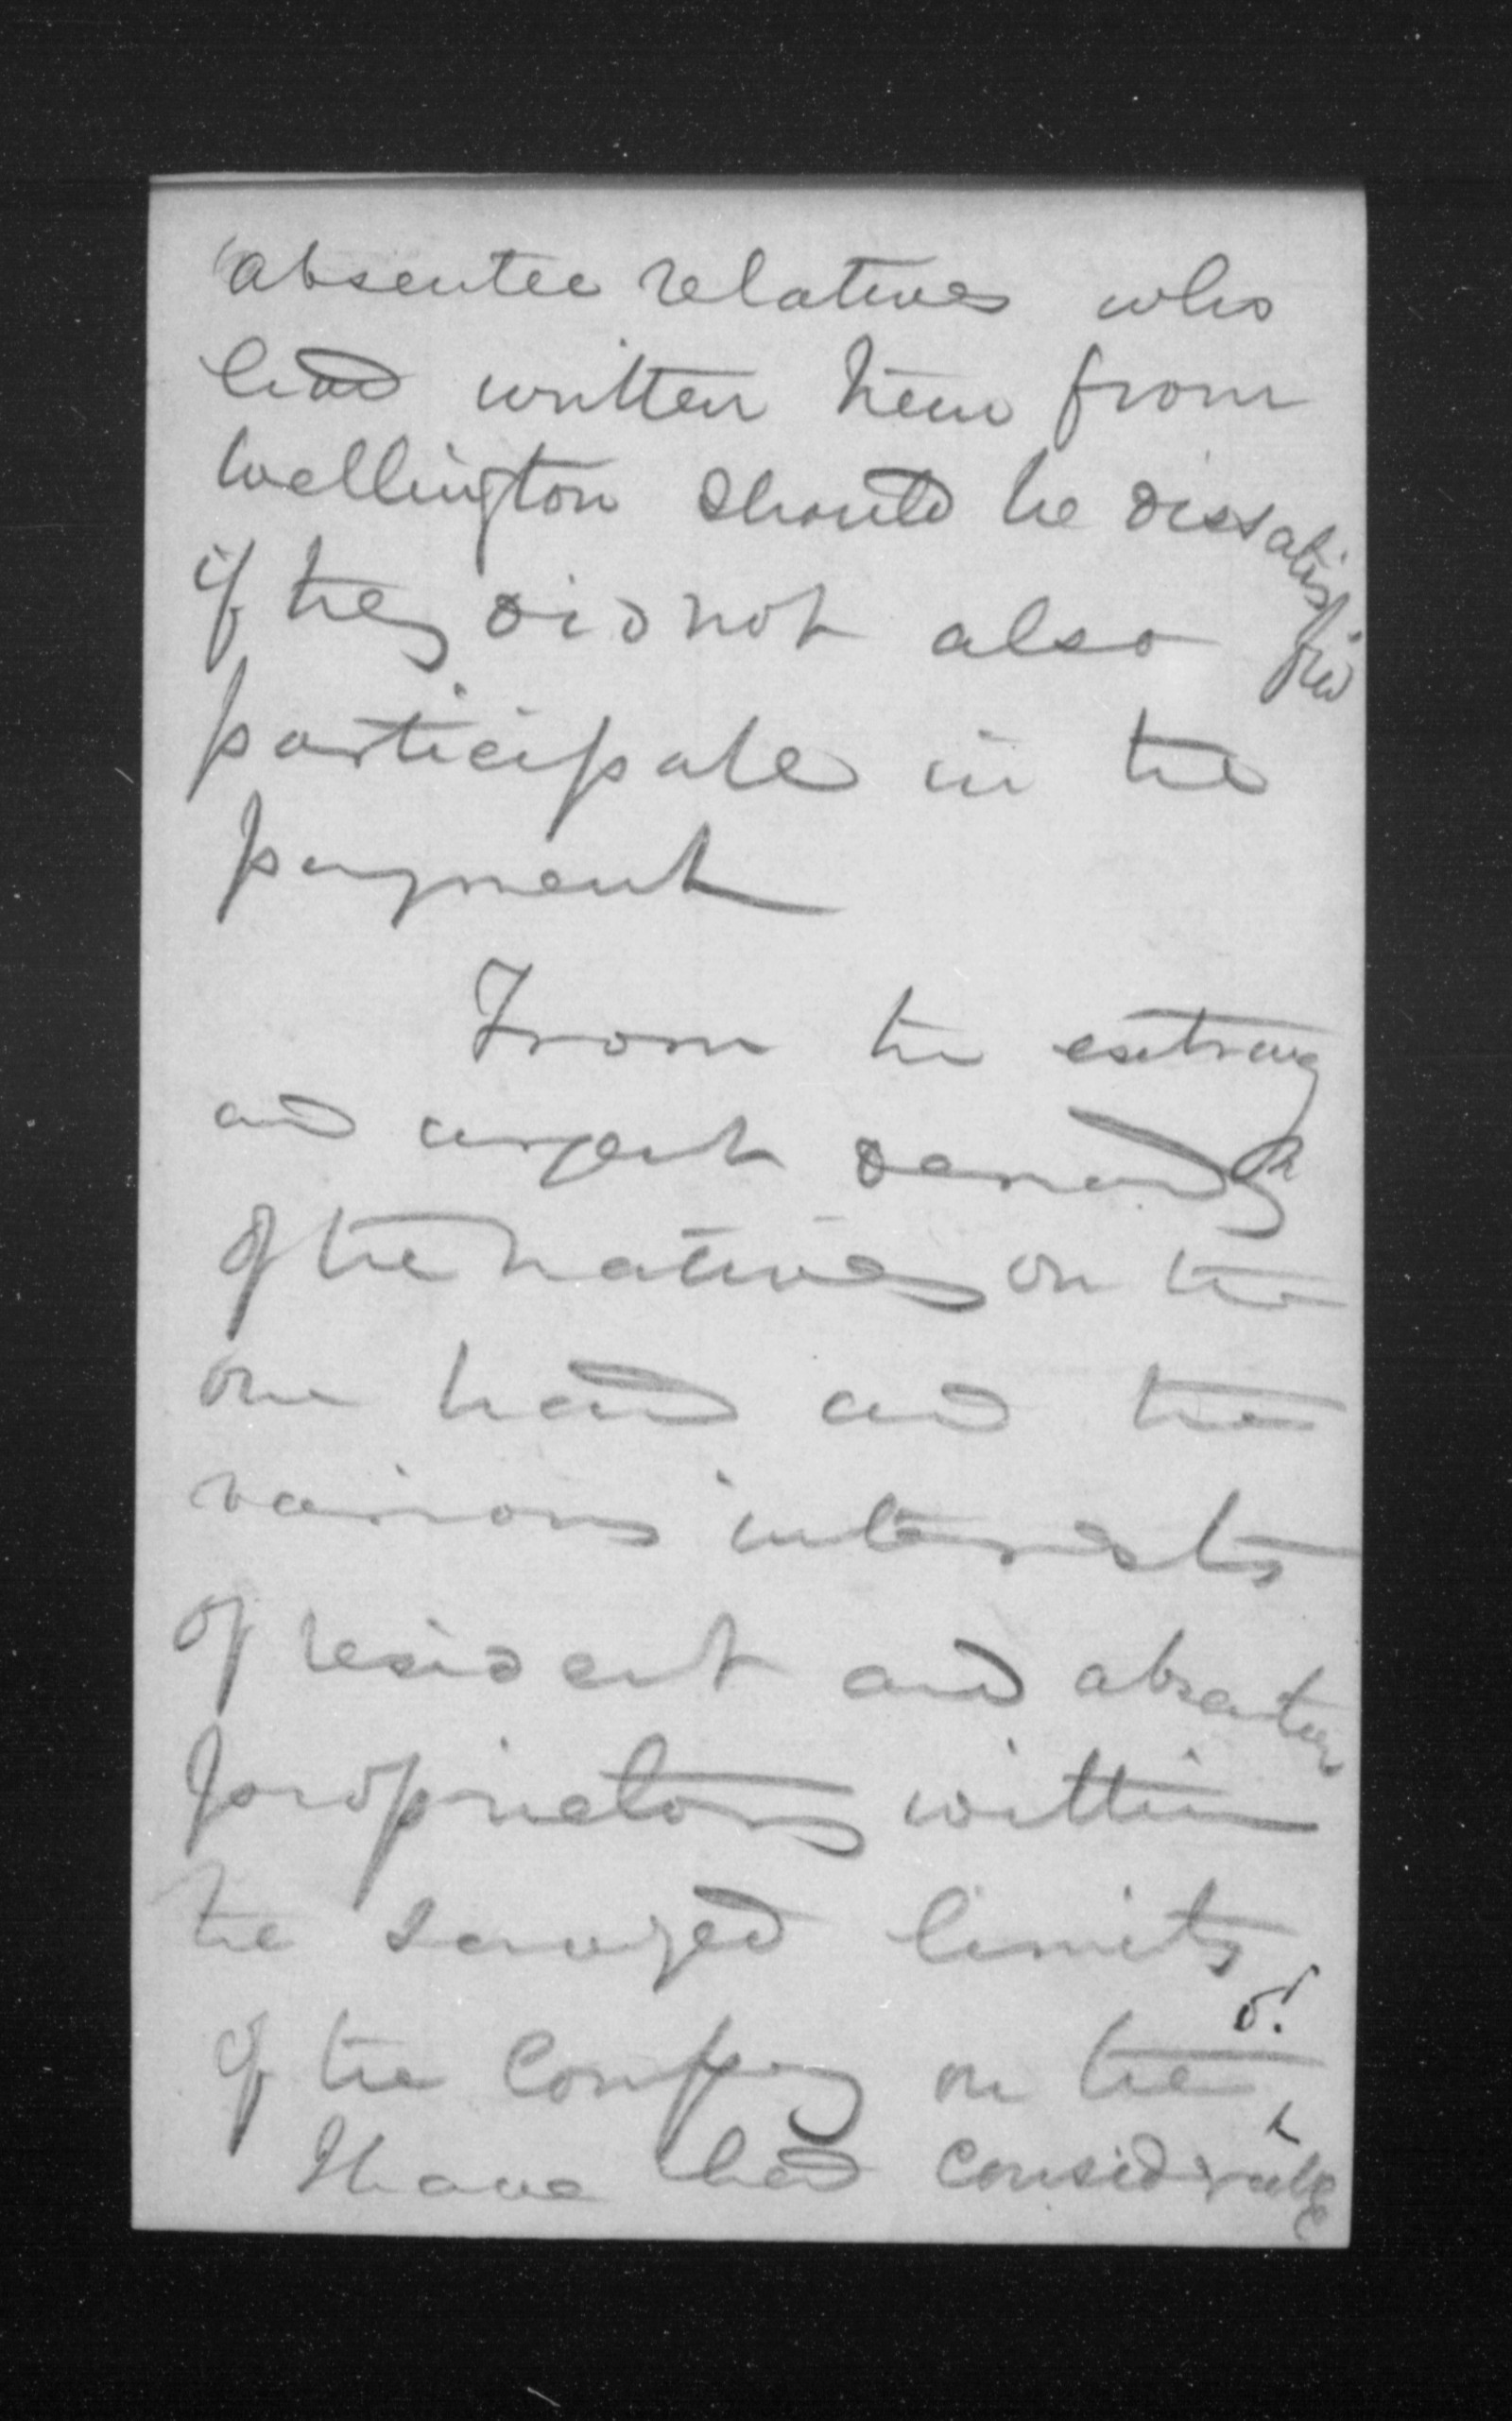 absentee relatives who
had written them from
Wellington should be dissatisfied
if they did not also
participate in the
payment
From the
and urgent demands
of the natives on the
one hand and the
various interests
of resident and absentee
proprietors within
the surveyed limits
of the Company on the o.
I have had considerable